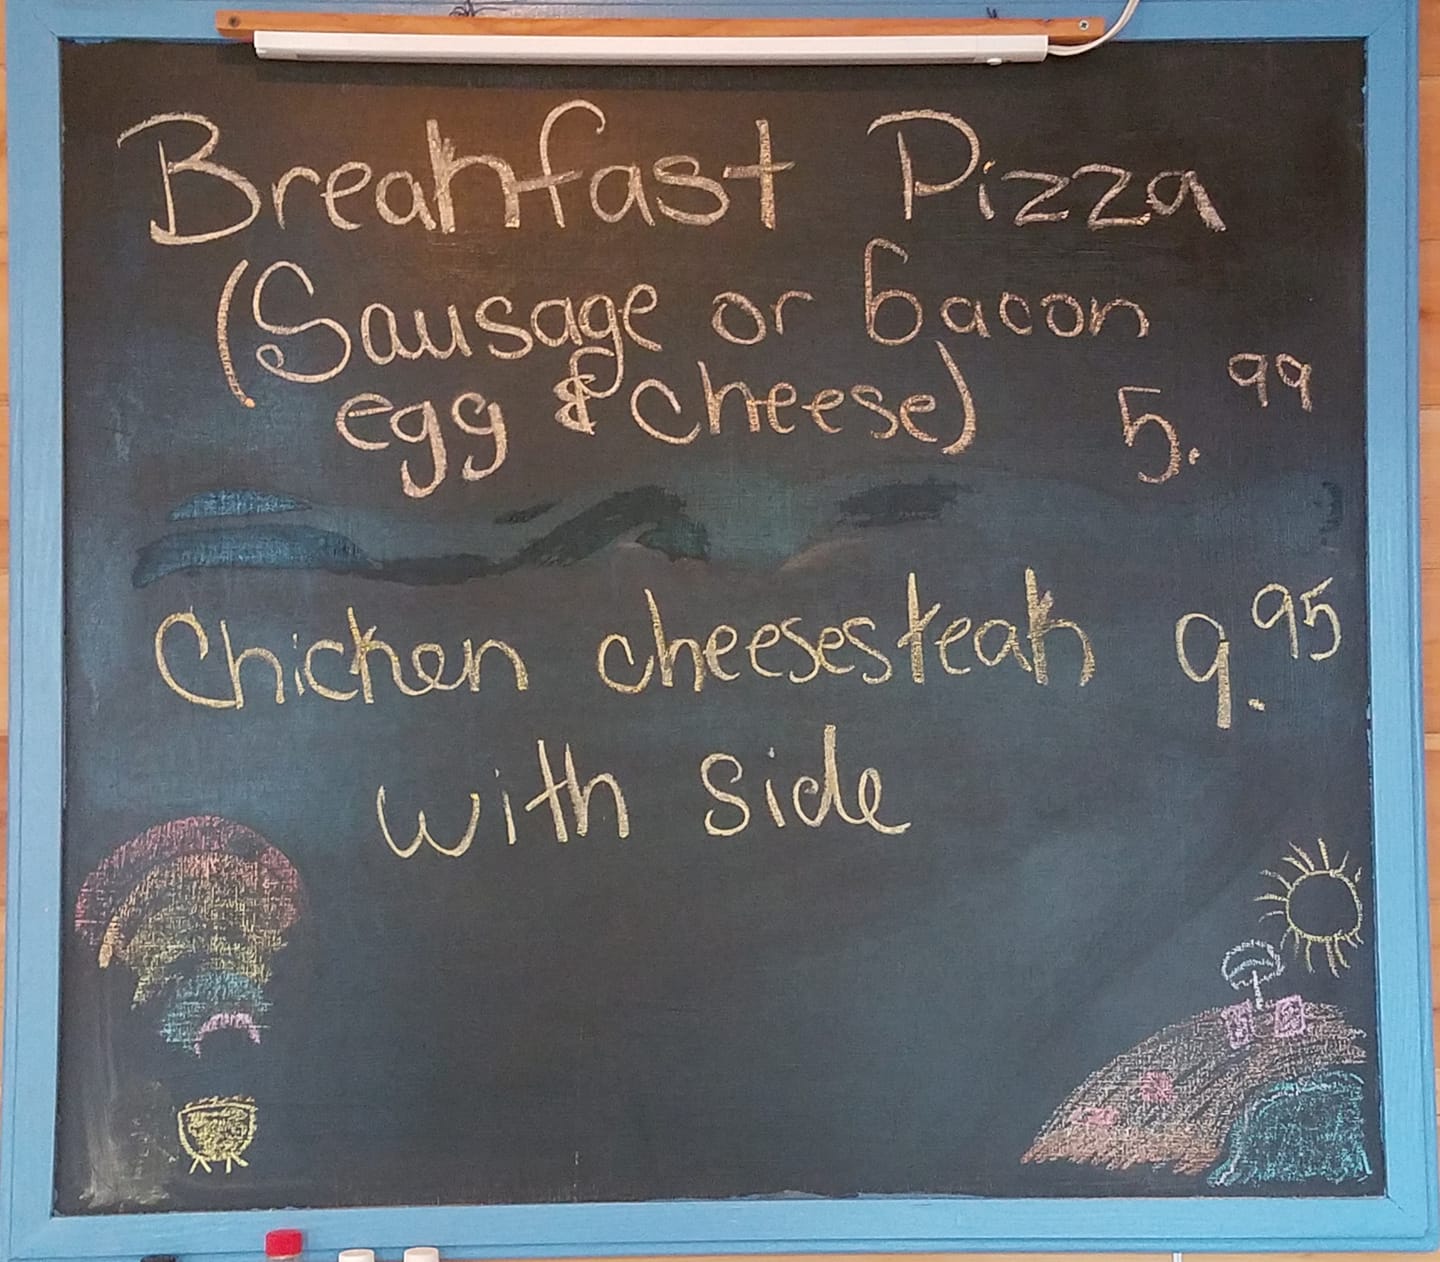 Breakfast Pizza
(Sausage or bacon
egg & cheese) 5.99
Chicken cheesesteak 9.95
with side